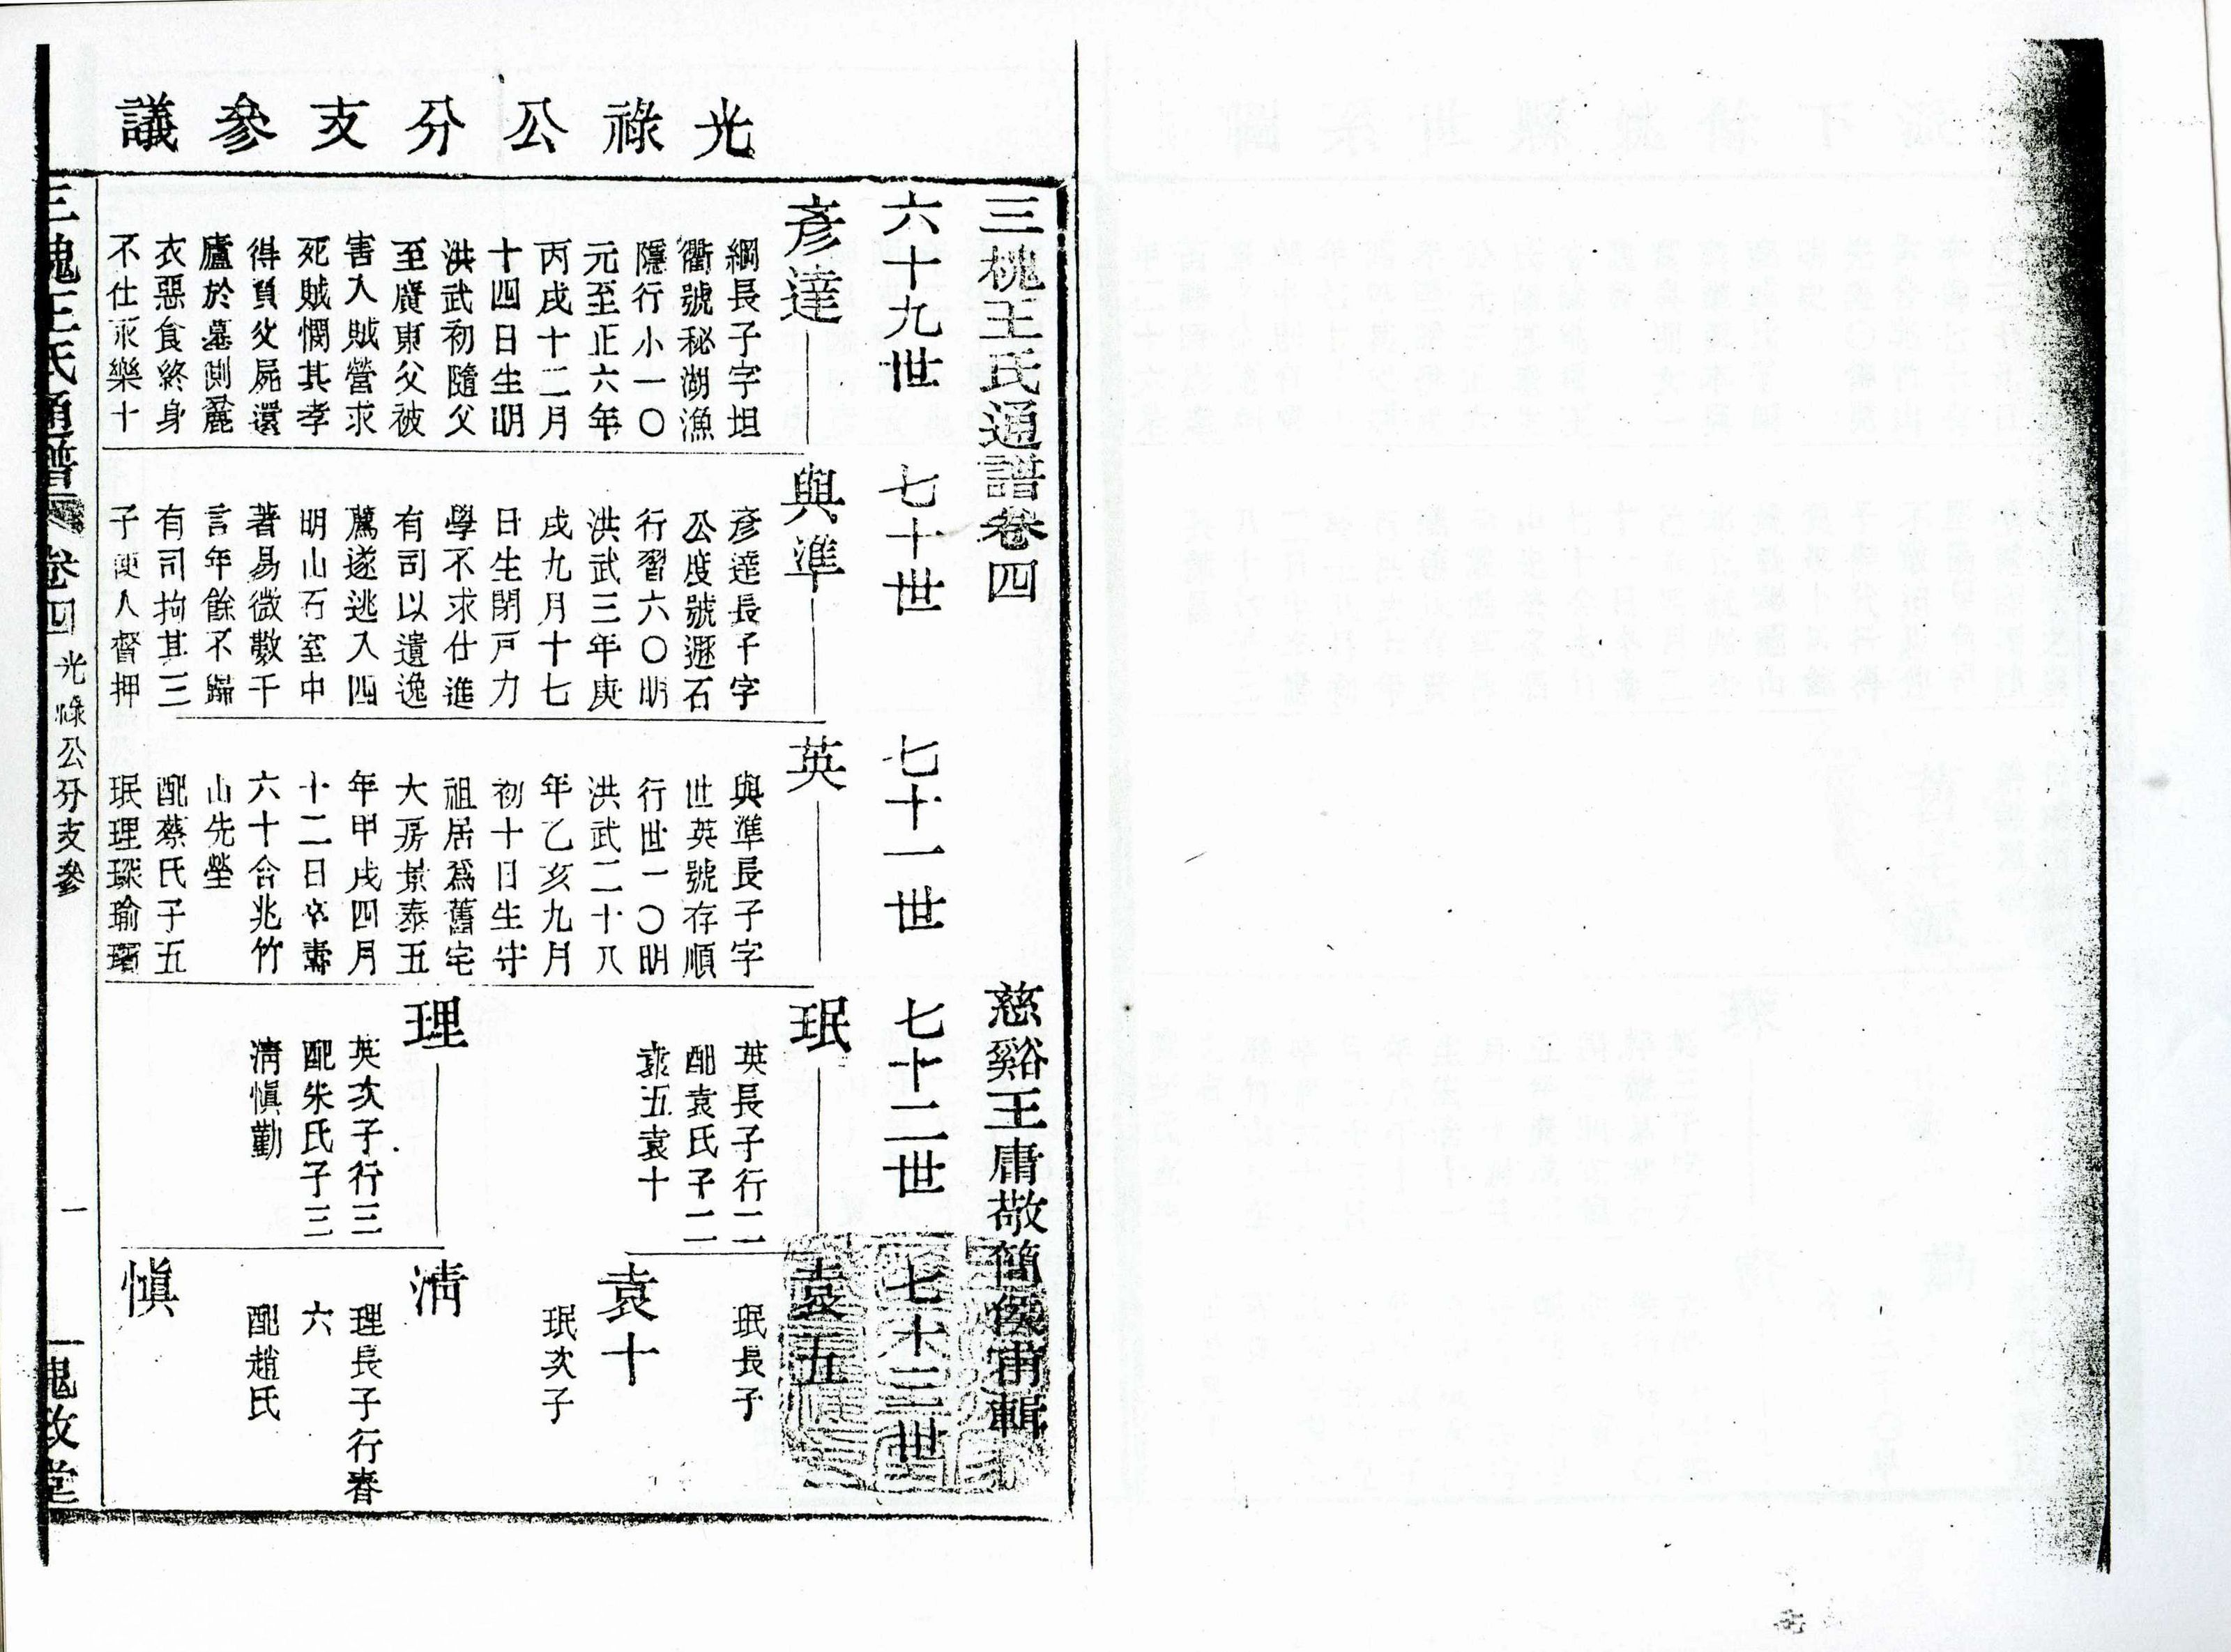 光祿公分支參議
三槐王氏通譜卷四
慈谿王庸敬簡侯甫輯
六十九世
七十世
七十一世
七十二世
七十三世
彥達
綱長子字坦
衢號秘湖漁
隱行小一〇
元至正六年
丙戌十二月
十四日生明
洪武初隨父
至廣東父被
害入賊營求
死賊憫其孝
得負父屍還
廬於墓側麤
衣惡食終身
不仕永樂十
與準
彥達長子字
公度號遯石
行習六〇明
洪武三年庚
戌九月十七
日生閉戸力
學不求仕進
有司以遺逸
薦遂逃入四
明山石室中
著易微數千
言年餘不歸
有司拘其三
子使人督押
英
與準長子字
世英號存順
行世一〇明
洪武二十八
年乙亥九月
初十日生守
祖居爲舊宅
大房景泰五
年甲戌四月
十二日卒壽
六十合兆竹
山先塋
配蔡氏子五
珉理琛瑜
珉
英長子行二
配袁氏子二
袁五袁十
理
英次子行三
配朱氏子三
淸愼勤
袁五
珉長子
袁十
珉次子
淸
理長子行春
六
配趙氏
愼
三槐王氏通譜 卷四 光祿公分支參 一 槐政堂